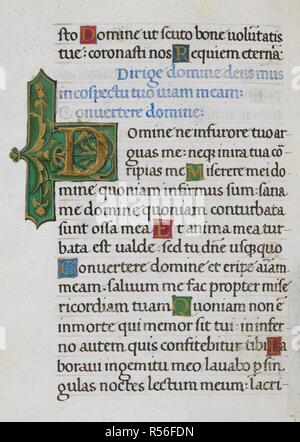 sto Domine ut scuto bone uoluntatis
tue: coronasti nos Requiem eterna:
Dirige domine deus mus
in cospectu tuo uiam meam:
Conuertere domine:
Domine ne infurore tuo ar
guas me: neq; in ira tua cō
ripias me Miserere mei do
mine quoniam infirmus sum: sana
me domine quoniam conturbata
sunt ossa mea Et anima mea tur
bata est ualde: sed tu dn̄e usq;quo
Conuertere domine et eripe aīam
meam: saluum me fac propter mise
ricordiam tuam Quoniam non ē
inmorte qui memor sit tui: in infer
no autem quis confitebitur tibi La
boraui in gemitu meo lauabo p sin
gulas noctes lectum meum: lacri
alamy
Image ID: R56FDN
www.alamy.com